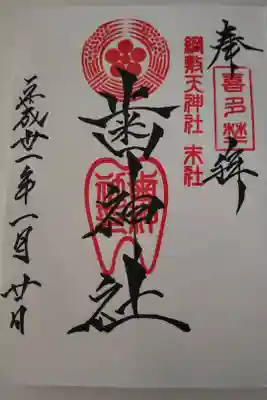 奉拝
喜多埜
綱敷天神社 末社
歯神社
歯神社
平成廿一年一月廿日